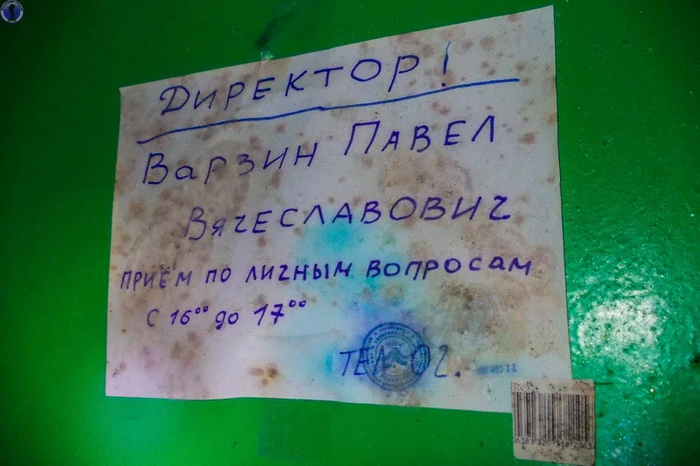 ДИРЕКТОР!
Варзин Павел
Вячеславович
приём по личным вопросам
с 16⁰⁰ до 17⁰⁰
ТЕЛ 02.